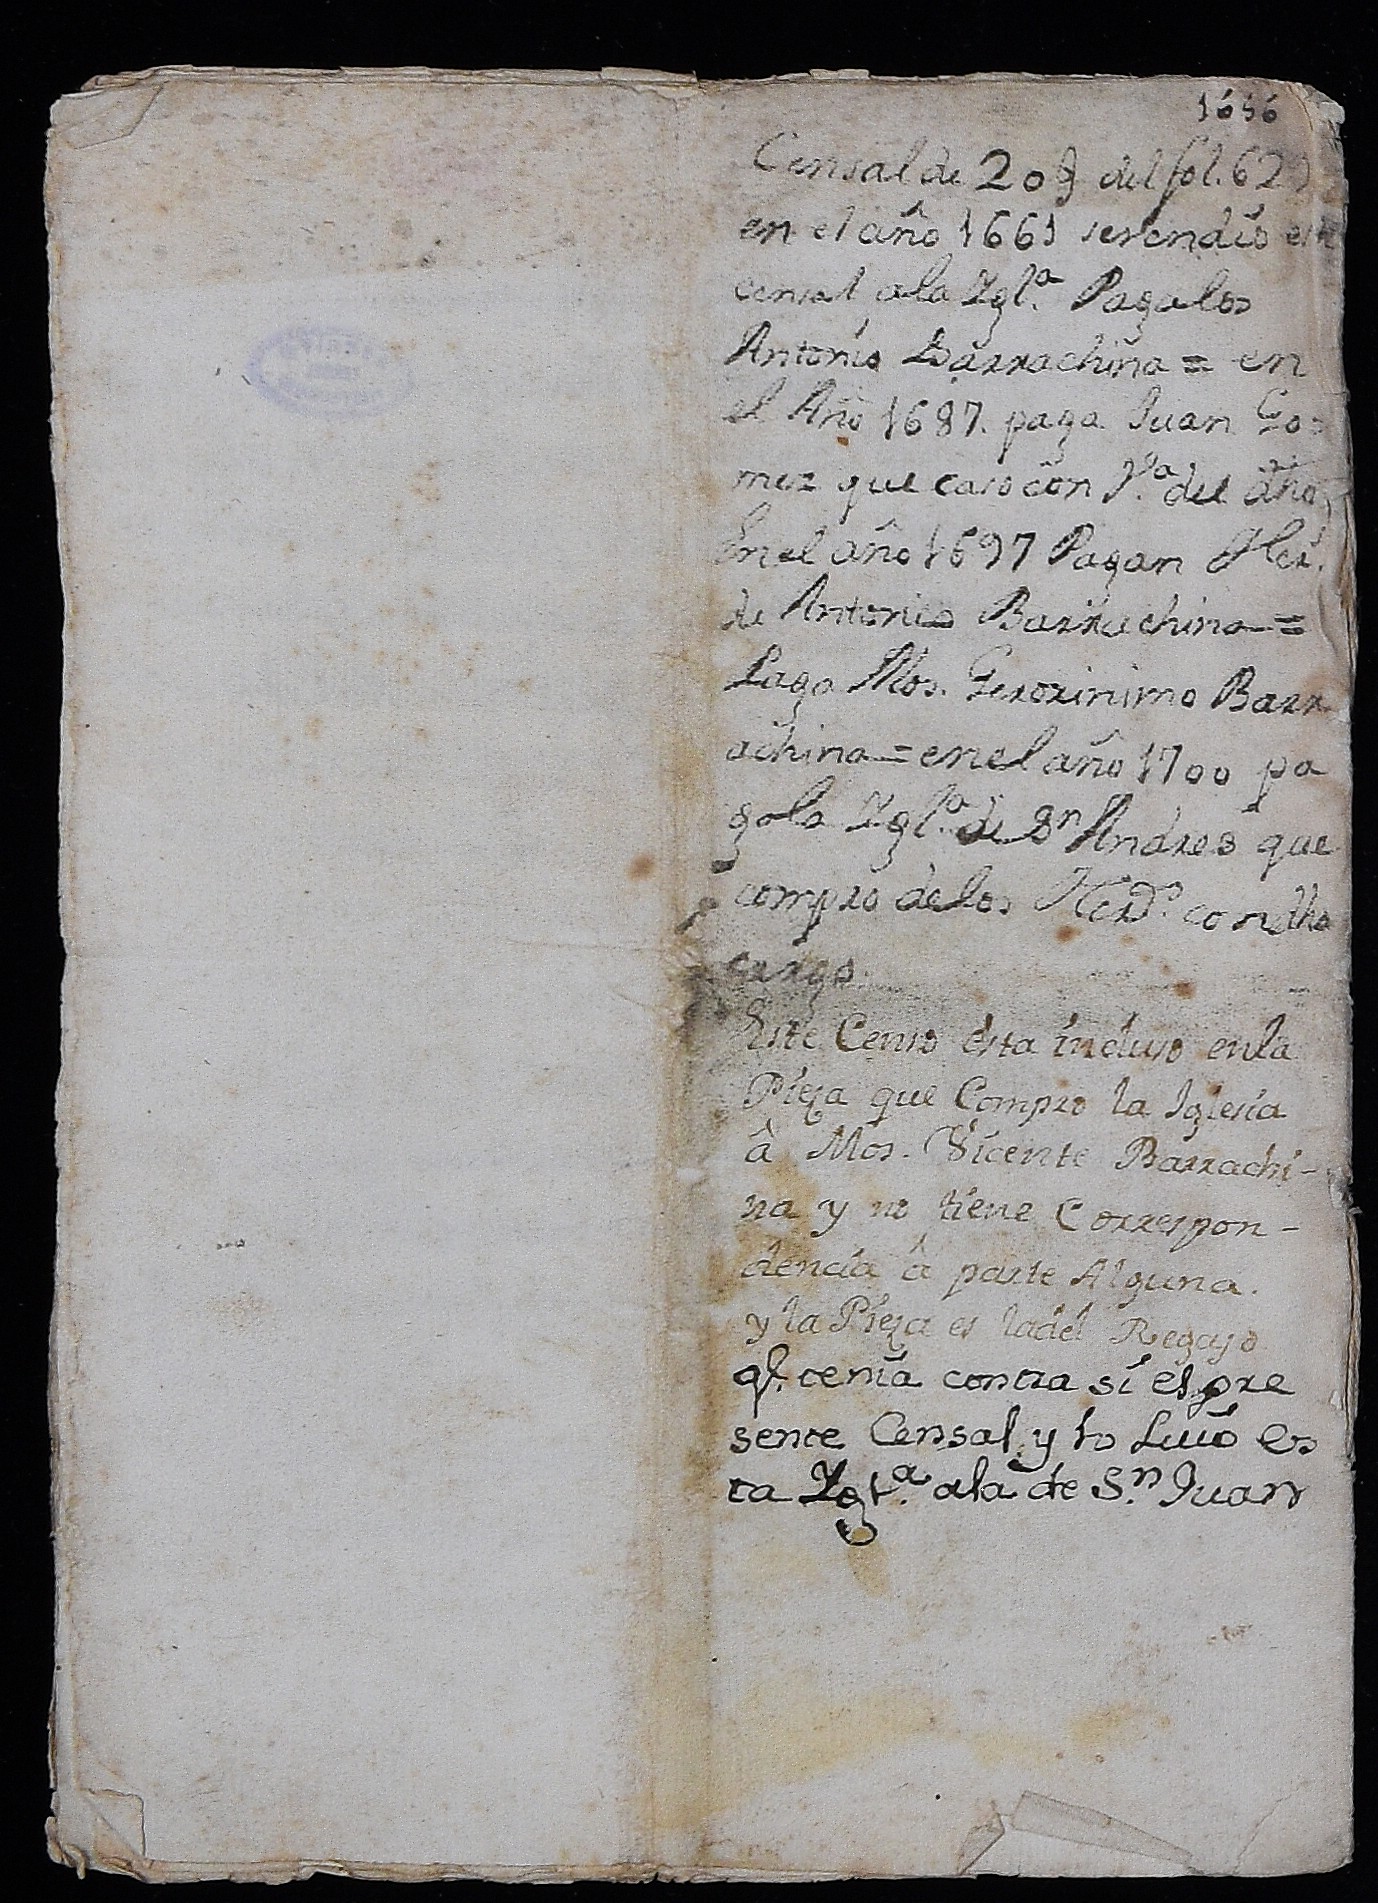 1656
Censal de 20 § del fol. 62
en el año 1661 se vendio este
censal a la Yglª. Pagalos
Antonio Barrachina = en
el Año 1687. paga Juan Go=
mez que caso con Vª. del dho
En el año 1697 Pagan Her.
de Antonio Barrachina =
Paga Mos. Geronimo Barr
achina = en el año 1700 pa
gola Yglª. de Sn Andres que
compro de los Herdˢ. con dho
cargo.
Este Censo esta incluso en la
Pieza que Compro la Iglesia
â Mos. Vicente Barrachi-
na y no tiene Correspon-
dencia â parte Alguna.
y la Pieza es la del Regajo
q. tenia contra sí el pre
sente Censal y lo Luió es
ta Yglª. ala de S.n Juan